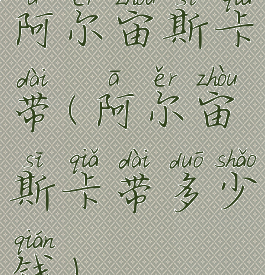 ā ěr zhòu sī qiǎ
阿尔宙斯卡
dài ā ěr zhòu
带(阿尔宙
sī qiǎ dài duō shǎo
斯卡带多少
qián
钱)